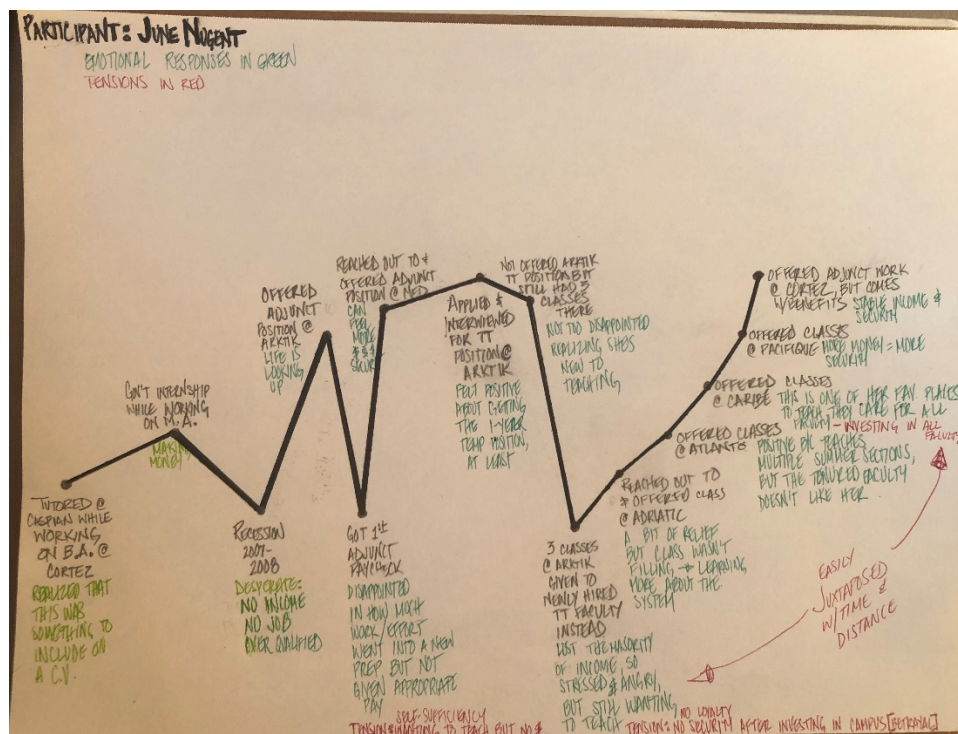 PARTICIPANT: JUNE NUGENT
EMOTIONAL RESPONSES IN GREEN
TENSIONS IN RED
TUTORED @
CASPIAN WHILE
WORKING
ON B.A. @
CORTEZ
REALIZED THAT
THIS WAS
SOMETHING TO
INCLUDE ON
A C.V.
GOV'T INTERNSHIP
WHILE WORKING
ON M.A.
MAKING
MONEY
RECESSION
2007-
2008
DESPERATE:
NO INCOME
NO JOB
OVER QUALIFIED
OFFERED
ADJUNCT
POSITION @
ARKTIK
LIFE IS
LOOKING
UP
GOT 1st
ADJUNCT
PAYCHECK
DISAPPOINTED
IN HOW MUCH
WORK/EFFORT
WENT INTO A NEW
PREP, BUT NOT
GIVEN APPROPRIATE
PAY
SELF-SUFFICIENCY
TENSION: WANTING TO TEACH BUT NO $
REACHED OUT TO &
OFFERED ADJUNCT
POSITION @ MED
CAN
FEEL
MORE
$ $ $
SECUR
APPLIED &
INTERVIEWED
FOR TT
POSITION @
ARKTIK
FELT POSITIVE
ABOUT GETTING
THE 1-YEAR
TEMP POSITION,
AT LEAST
NOT OFFERED ARKTIK
TT POSITION BUT
STILL HAD 3
CLASSES
THERE
NOT TOO DISAPPOINTED
REALIZING SHES
NEW TO
TEACHING
3 CLASSES
@ ARKTIK
GIVEN TO
NEWLY HIRED
TT FACULTY
INSTEAD
LOST THE MAJORITY
OF INCOME, SO
STRESSED & ANGRY,
BUT STILL WANTING
TO TEACH
NO LOYALTY
TENSION: NO SECURITY AFTER INVESTING IN CAMPUS [BETRAYAL]
REACHED OUT TO
& OFFERED CLASS
@ ADRIATIC
A BIT OF RELIEF
BUT CLASS WASN'T
FILLING, → LEARNING
MORE ABOUT THE
SYSTEM
OFFERED CLASSES
@ ATLANTE
POSITIVE B/C TEACHES
MULTIPLE SUMMER SECTIONS,
BUT THE TENURED FACULTY
DOESN'T LIKE HER.
OFFERED CLASSES
@ CARIBE THIS IS ONE OF HER FAV. PLACES
TO TEACH, THEY CARE FOR ALL
FACULTY - INVESTING IN ALL
FACULTY
OFFERED CLASSES
@ PACIFIQUE MORE MONEY = MORE
SECURITY
OFFERED ADJUNCT WORK
@ CORTEZ, BUT COMES
W/BENEFITS STABLE INCOME &
SECURITY
EASILY
JUXTAPOSED
W/TIME &
DISTANCE